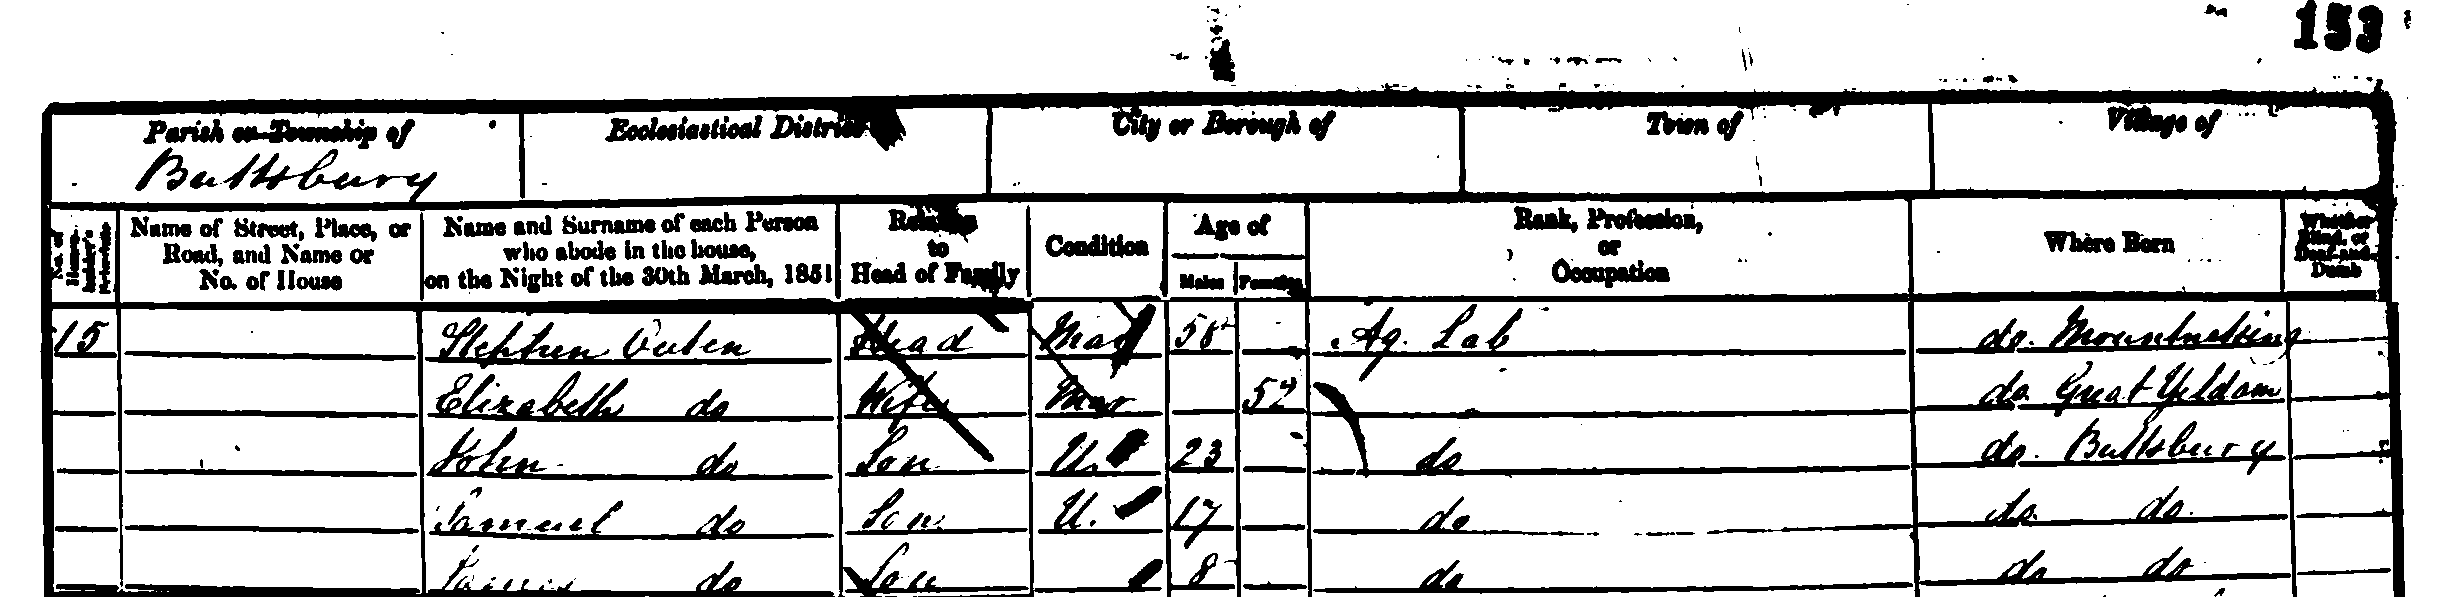 153
Parish or Township of Ecclesiastical District City or Borough of Town of Village of
Buttsbury
No. of Householder's Schedule Name of Street, Place, or Road, and Name or No. of House Name and Surname of each Person who abode in the house, on the Night of the 30th March, 1851 Relation to Head of Family Condition Age of Males Females Rank, Profession, or Occupation Where Born Whether Blind, or Deaf-and-Dumb
15 Stephen Head Mar Ag. Lab do. Mountnessing
Elizabeth do Wife Mar 52 do. Great Yeldam
John do Son U. 23 do do. Buttsbury
Samuel do Son U. 17 do do. do.
do Son 8 do do do